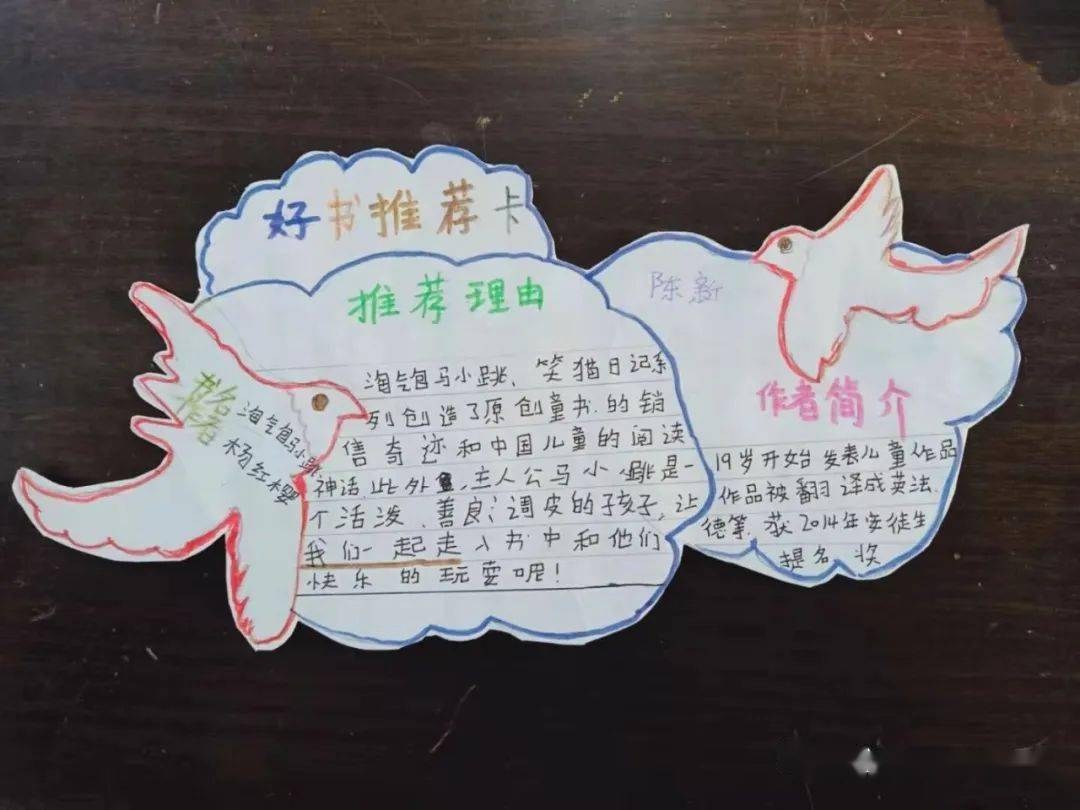 好书推荐卡
推荐理由
淘气包马小跳、笑猫日记系
列创造了原创童书的销
售奇迹和中国儿童的阅读
神话,此外,主人公马小跳是一
个活泼、善良、调皮的孩子,让
我们一起走入书中和他们
快乐的玩耍吧!
书名
作者
淘气包马小跳
杨红樱
陈新
作者简介
19岁开始发表儿童作品
作品被翻译成英法、
德等.获2014年安徒生
提名奖